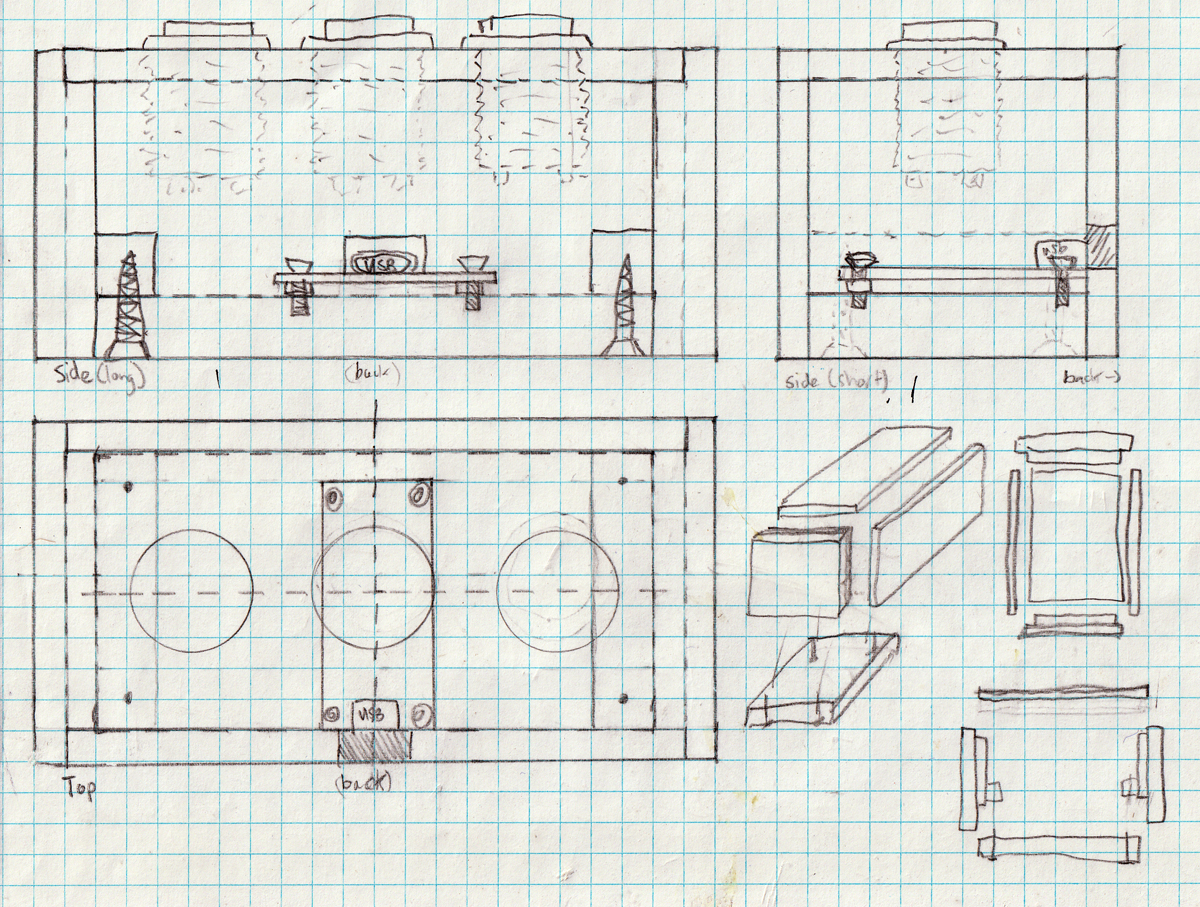 USB
usb
Side (long)
(back)
side (short)
back →
USB
Top
(back)